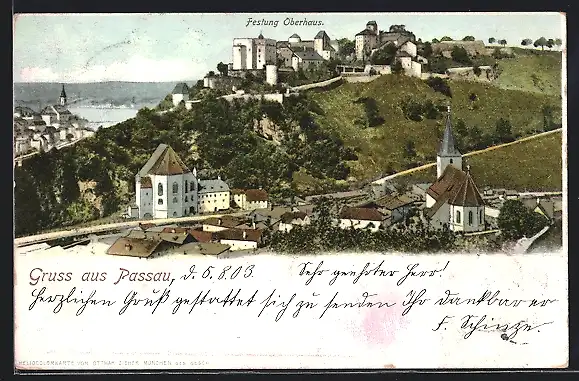 Festung Oberhaus.
Gruss aus Passau, d. 6.8.03. Sehr geehrter Herr!
Herzlichen Gruß gestattet sich zu senden Ihr dankbarer
F. Schinze.
HELIOCOLORKARTE VON OTTMAR ZIEHER, MÜNCHEN